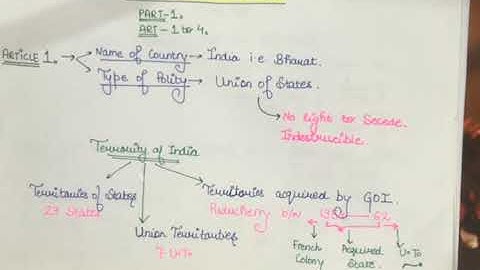 PART-1.
ART-1 to 4.
ARTICLE 1.
Name of Country → India i.e Bharat.
Type of Polity → Union of States.
No Right to Secede.
Indestructible.
Territory of India
Territories of States
Territories acquired by GOI.
Puducherry b/w
62
Union Territories
7 UTs
French Colony
Acquired State.
U.T.